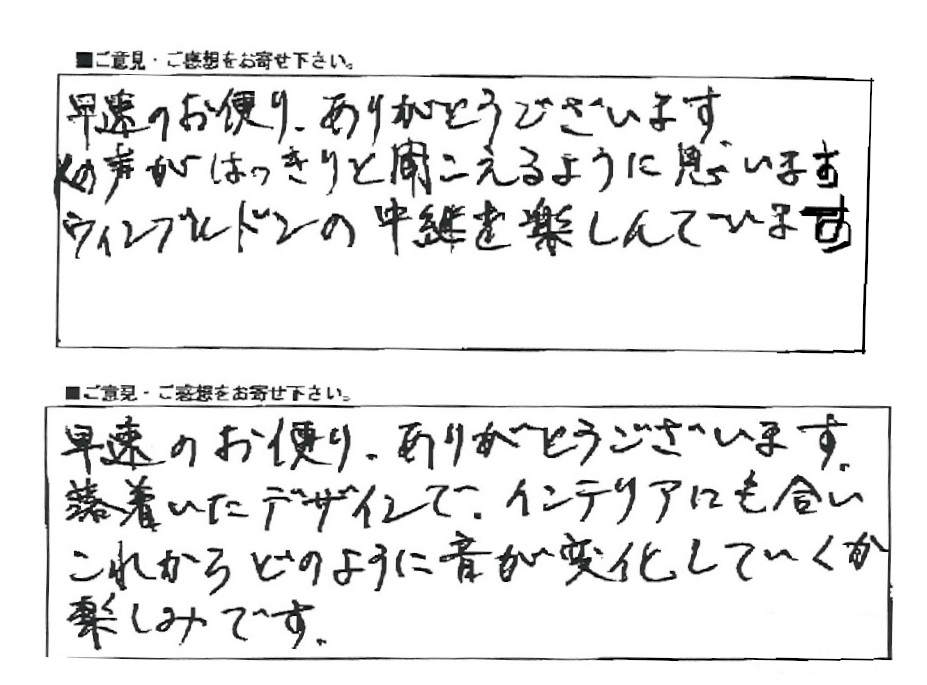 ■ご意見・ご感想をお寄せ下さい。
早速のお便り、ありがとうございます
の声がはっきりと聞こえるように思います
ウィンブルドンの中継を楽しんでいます
■ご意見・ご感想をお寄せ下さい。
早速のお便り、ありがとうございます。
落着いたデザインで、インテリアにも合い
これからどのように音が変化していくか
楽しみです。